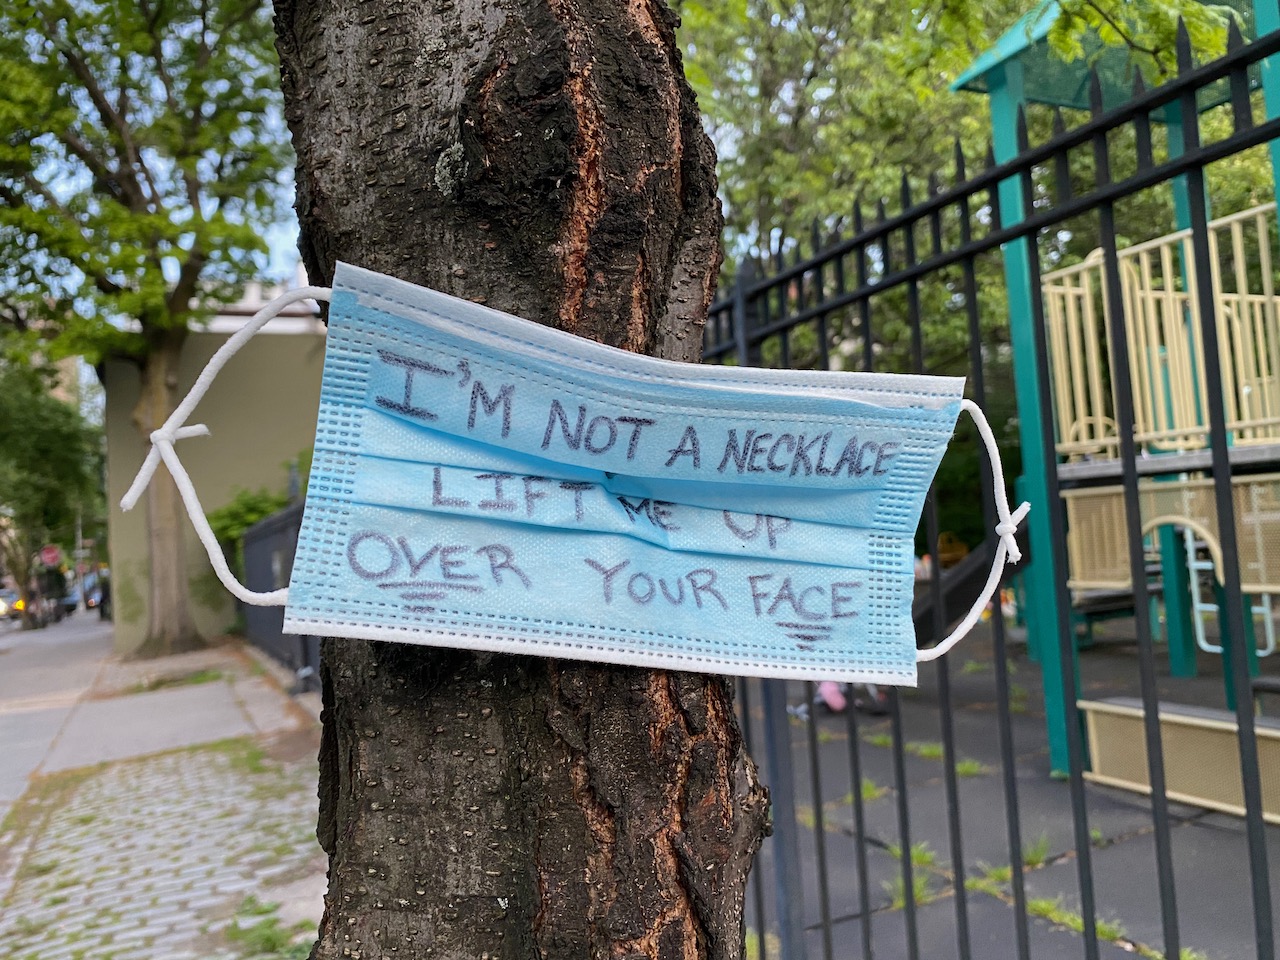 I'M NOT A NECKLACE
LIFT ME UP
OVER YOUR FACE